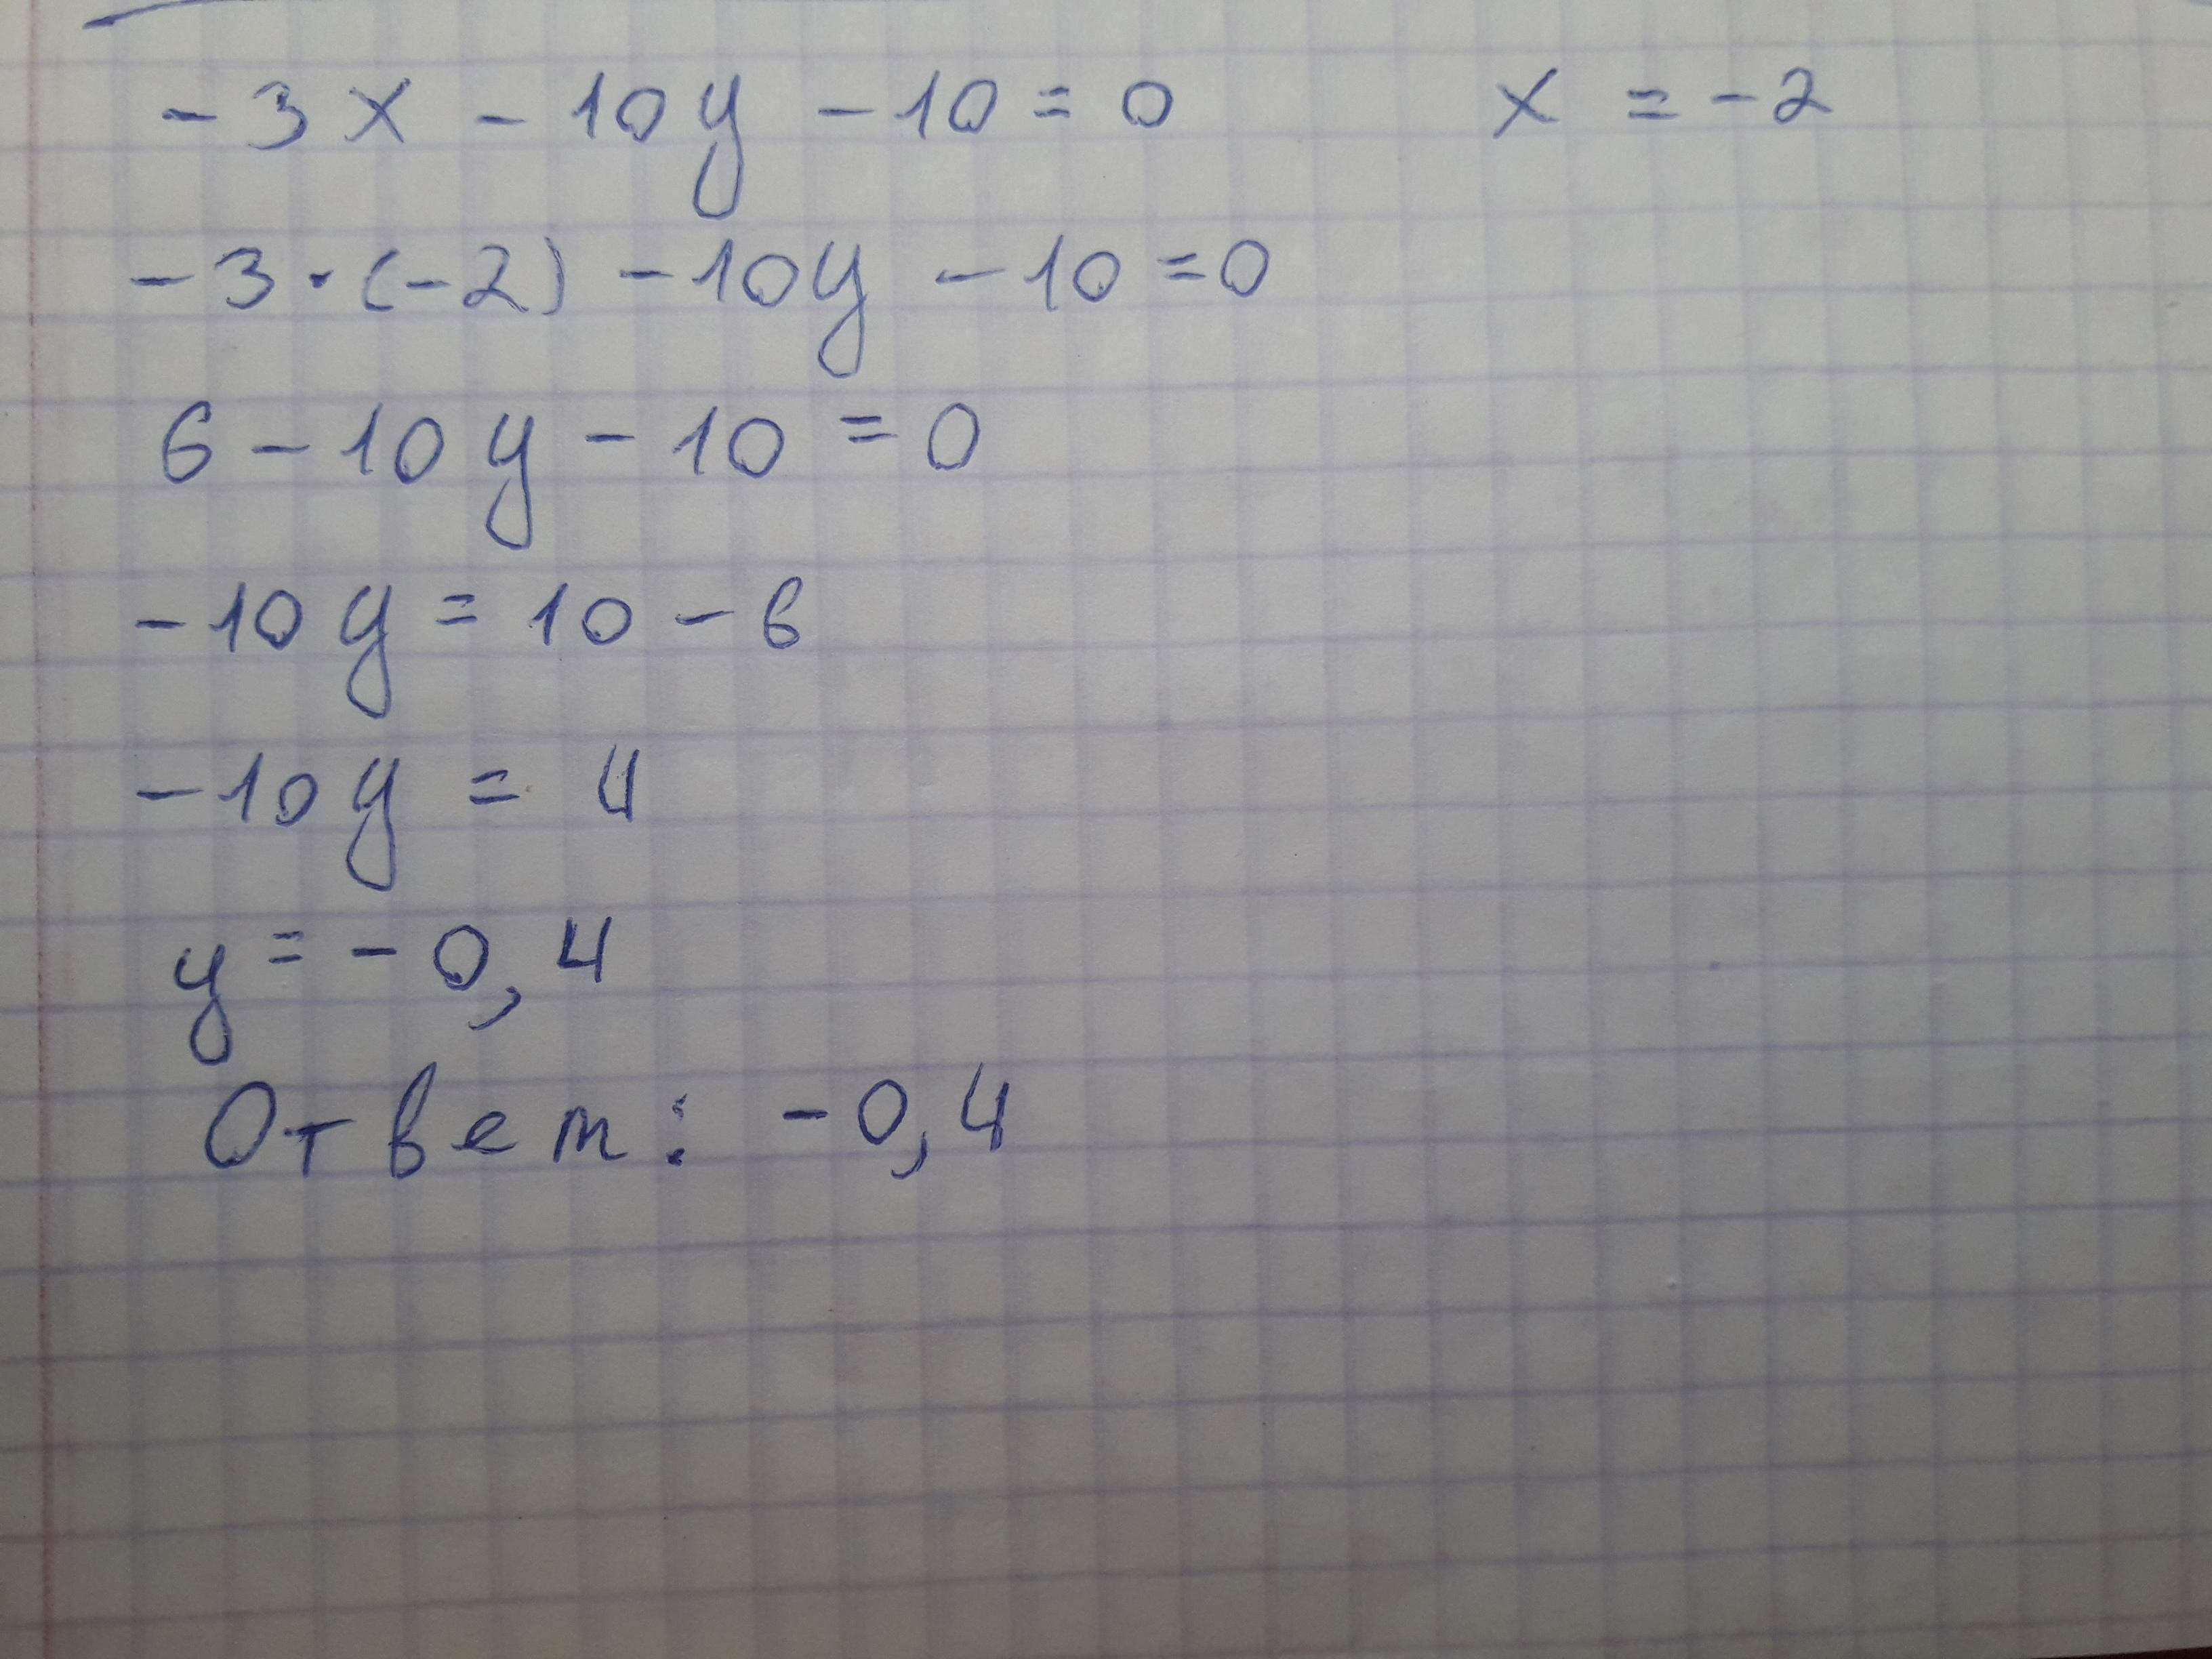 -3x - 10y - 10 = 0 x = -2
-3·(-2) - 10y - 10 = 0
6 - 10y - 10 = 0
-10y = 10 - 6
-10y = 4
y = -0,4
Ответ: -0,4